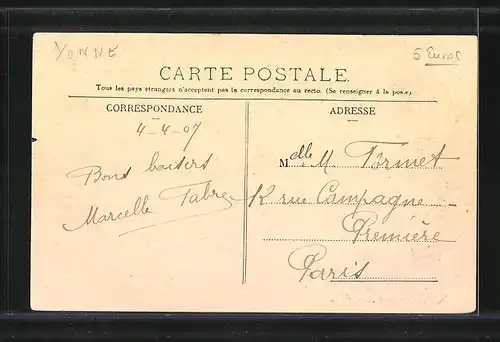 YONNE
5 Euros
CARTE POSTALE.
Tous les pays étrangers n'acceptent pas la correspondance au recto. (Se renseigner à la poste)
CORRESPONDANCE
ADRESSE
4-4-07
Bons baisers
Marcelle Fabre
Mdlle M. Formet
rue Campagne
Première
Paris